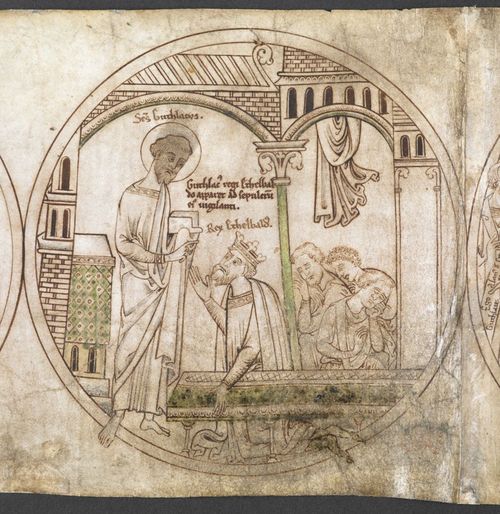 Scs Guthlacus.
Guthlac' regi Ethelbal
do apparet ad sepulcrū
ei' vigilanti.
Rex Ethelbald'.